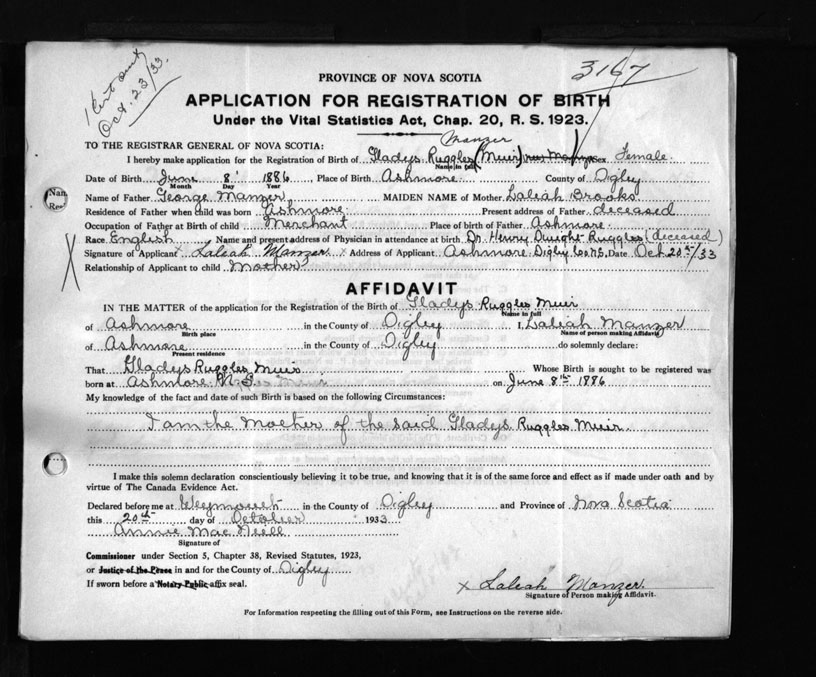 1 Cert sent
Oct. 23/33.
3167
PROVINCE OF NOVA SCOTIA
APPLICATION FOR REGISTRATION OF BIRTH
Under the Vital Statistics Act, Chap. 20, R. S. 1923.
TO THE REGISTRAR GENERAL OF NOVA SCOTIA:
Manzer
I hereby make application for the Registration of Birth of Gladys Ruggles (Muir) Sex Female
Name in full
Date of Birth June 8 1886 Place of Birth Ashmore County of Digby
Month Day Year
Name of Father George Manzer MAIDEN NAME of Mother Laleah Brooks
Residence of Father when child was born Ashmore Present address of Father deceased
Occupation of Father at Birth of child Merchant Place of birth of Father Ashmore
Race English Name and present address of Physician in attendance at birth Dr. Henry Dwight Ruggles (deceased)
Signature of Applicant Laleah Manzer Address of Applicant Ashmore Digby Co N.S. Date Oct 20th/33
Relationship of Applicant to child Mother
X
AFFIDAVIT
IN THE MATTER of the application for the Registration of the Birth of Gladys Ruggles Muir
Name in full
of Ashmore in the County of Digby I, Laleah Manzer
Birth place Name of person making Affidavit
of Ashmore in the County of Digby do solemnly declare:
Present residence
That Gladys Ruggles Muir Whose Birth is sought to be registered was
born at Ashmore N.S. on June 8th 1886
My knowledge of the fact and date of such Birth is based on the following Circumstances:
I am the Mother of the said Gladys Ruggles Muir.
I make this solemn declaration conscientiously believing it to be true, and knowing that it is of the same force and effect as if made under oath and by
virtue of The Canada Evidence Act.
Declared before me at Weymouth in the County of Digby and Province of Nova Scotia
this 20th day of October 1933
Annie Mac Neill
Signature of
Commissioner under Section 5, Chapter 38, Revised Statutes, 1923,
or Justice of the Peace in and for the County of Digby
If sworn before a Notary Public affix seal.
x Laleah Manzer.
Signature of Person making Affidavit.
For Information respecting the filling out of this Form, see Instructions on the reverse side.